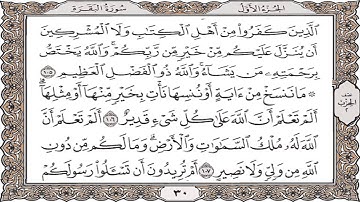 الجزء الأول
سورة البقرة
الَّذِينَ كَفَرُوا مِنْ أَهْلِ الْكِتَابِ وَلَا الْمُشْرِكِينَ
أَن يُنَزَّلَ عَلَيْكُم مِّنْ خَيْرٍ مِّن رَّبِّكُمْ وَاللَّهُ يَخْتَصُّ
بِرَحْمَتِهِ مَن يَشَاءُ وَاللَّهُ ذُو الْفَضْلِ الْعَظِيمِ ١٠٥
مَا نَنسَخْ مِنْ ءَايَةٍ أَوْ نُنسِهَا نَأْتِ بِخَيْرٍ مِّنْهَا أَوْ مِثْلِهَا
أَلَمْ تَعْلَمْ أَنَّ اللَّهَ عَلَىٰ كُلِّ شَيْءٍ قَدِيرٌ ١٠٦ أَلَمْ تَعْلَمْ أَنَّ
اللَّهَ لَهُ مُلْكُ السَّمَٰوَٰتِ وَالْأَرْضِ وَمَا لَكُم مِّن دُونِ
اللَّهِ مِن وَلِيٍّ وَلَا نَصِيرٍ ١٠٧ أَمْ تُرِيدُونَ أَن تَسْـَٔلُوا رَسُولَكُمْ
٣٠